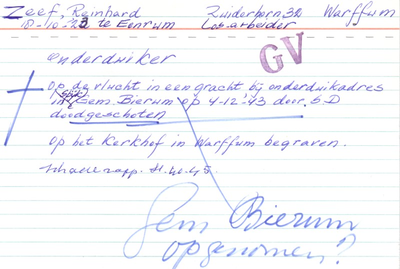 Zeef, Reinhard Zuiderhorn, 32 Warffum
18-10-23 te Eenrum Los-arbeider
GV
onderduiker
op de vlucht in een gracht bij onderduikadres
in Gem. Bierum op 4-12-'43 door S.D
doodgeschoten
op het Kerkhof in Warffum begraven.
Gem Bierum
opgenomen?